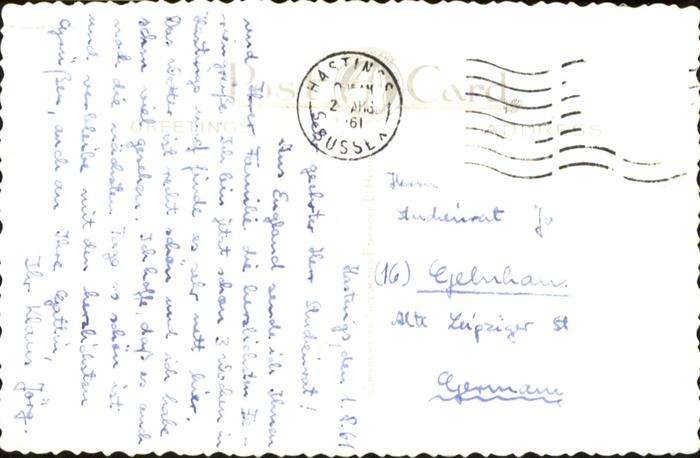 Post Card
GREETINGS
ADDRESS
HASTINGS
2 AUG
61
SUSSEX
Hastings, den 1.8.61
Sehr geehrter Herr Studienrat!
Aus England sende ich Ihnen
und Ihrer Familie die herzlichsten Fe-
riengrüße. Ich bin jetzt schon 3 Wochen in
Hastings und finde es sehr nett hier.
Das Wetter ist recht schön und ich habe
schon viel gesehen. Ich hoffe, daß es auch
noch die nächsten Tage so schön ist
und verbleibe mit den herzlichsten
Grüßen, auch an Ihre Gattin,
Ihr Klaus Jörg.
Herrn
Studienrat Jo
(16) Gelnhau
Alte Leipziger St
German